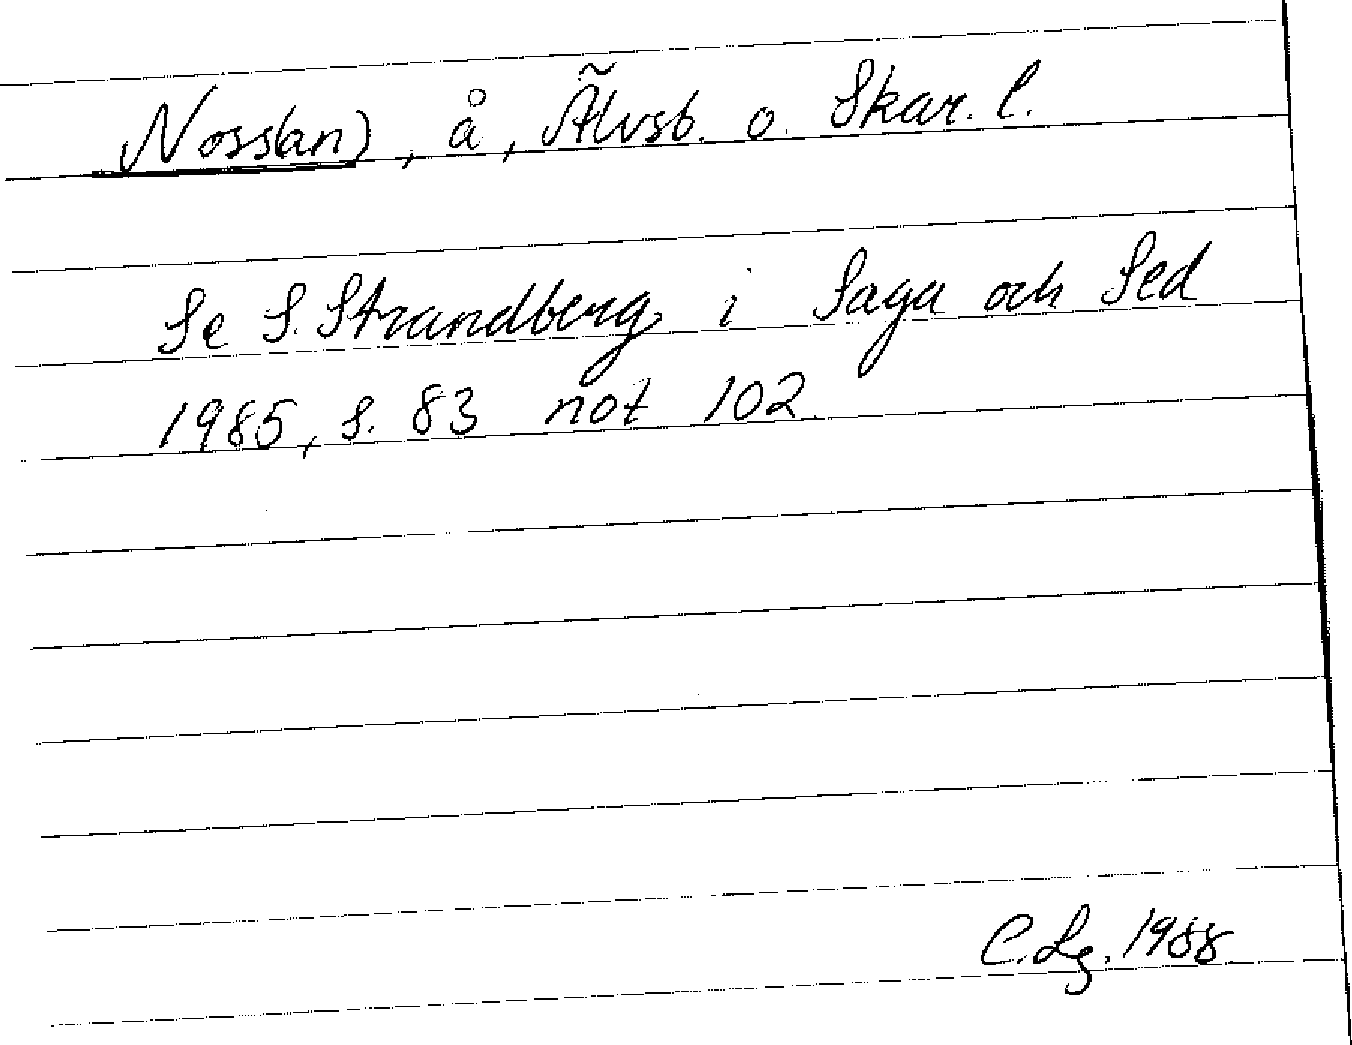 Noss(an), å, Älvsb. o. Skar. l.
Se S. Strandberg i Saga och Sed
1985, s. 83 not 102.
C. Lg. 1988